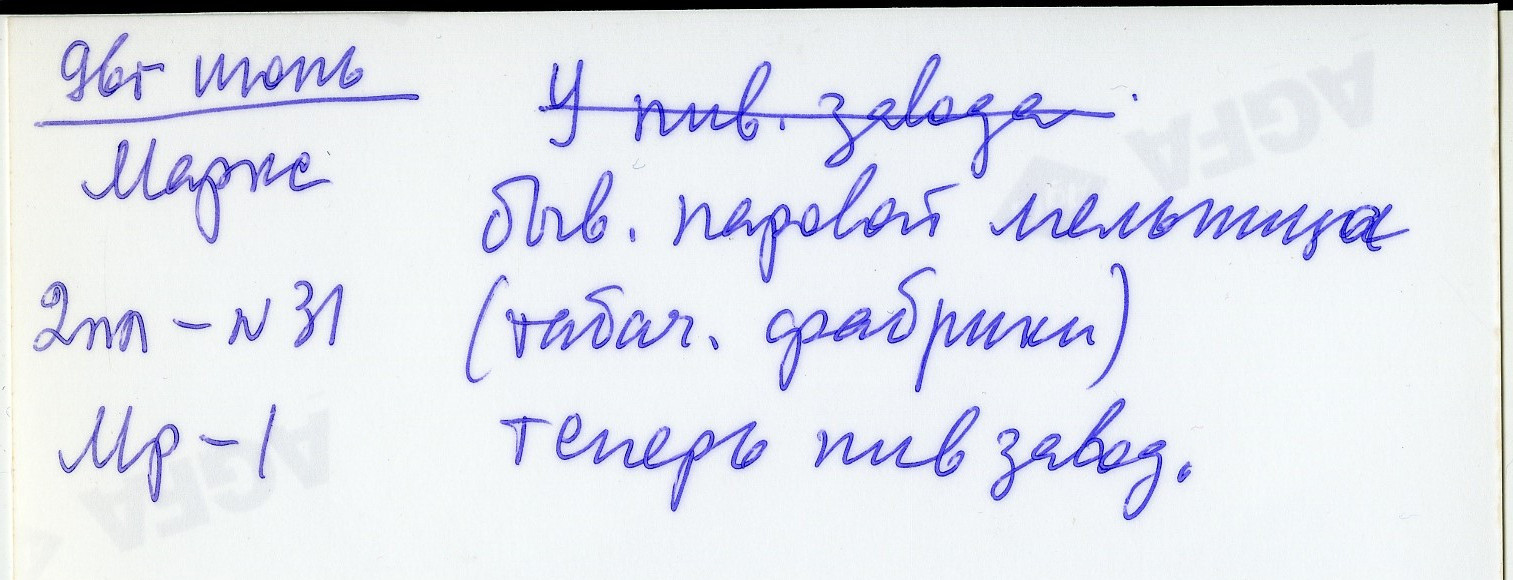 96г июнь
Маркс
2пл - N 31
Мр - 1
У пив. завода
быв. паровой мельница
(табач. фабрики)
теперь пивзавод.
AGFA
AGFA